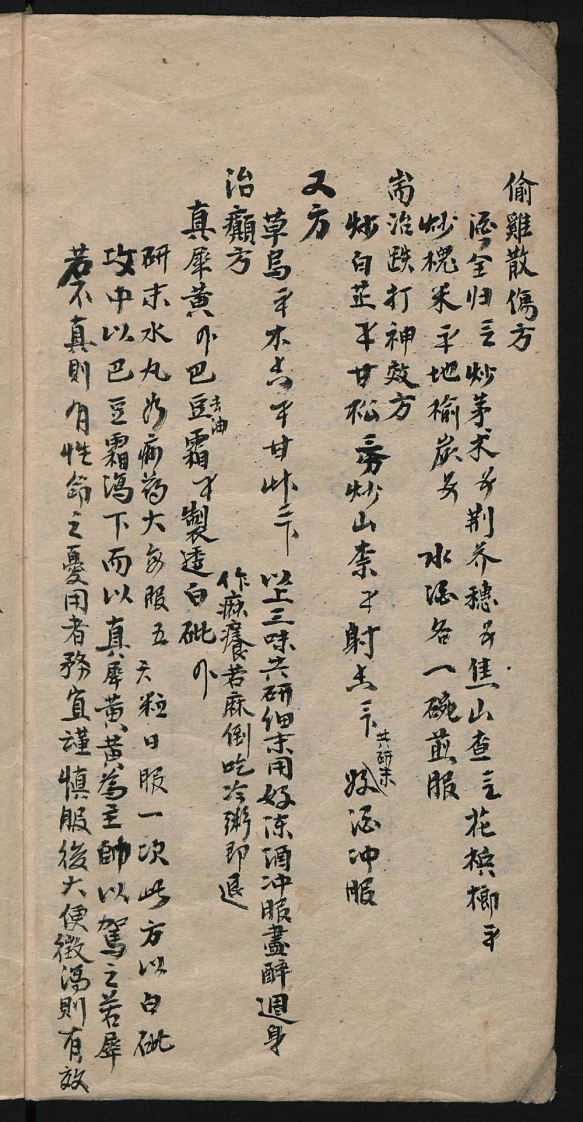 偷雞散傷方
酒全归 炒茅术 荆芥穗 焦山查 花槟榔
炒槐米 地榆炭 水酒各一碗煎服
耑治跌打神效方
炒白芷 甘松 炒山柰 射香 共研末 好酒冲服
又方
草烏 木香 甘艸 以上三味共研细末用好陈酒冲服盡醉週身
作痲癢若麻倒吃冷粥即退
治癲方
真犀黄 巴豆霜去油 製透白砒
研末水丸 大每服五六粒日服一次此方以白砒
攻中以巴豆霜瀉下而以真犀黄黄為主帥以駕之若犀
若不真則有性命之憂用者務宜謹慎服後大便微瀉則有效